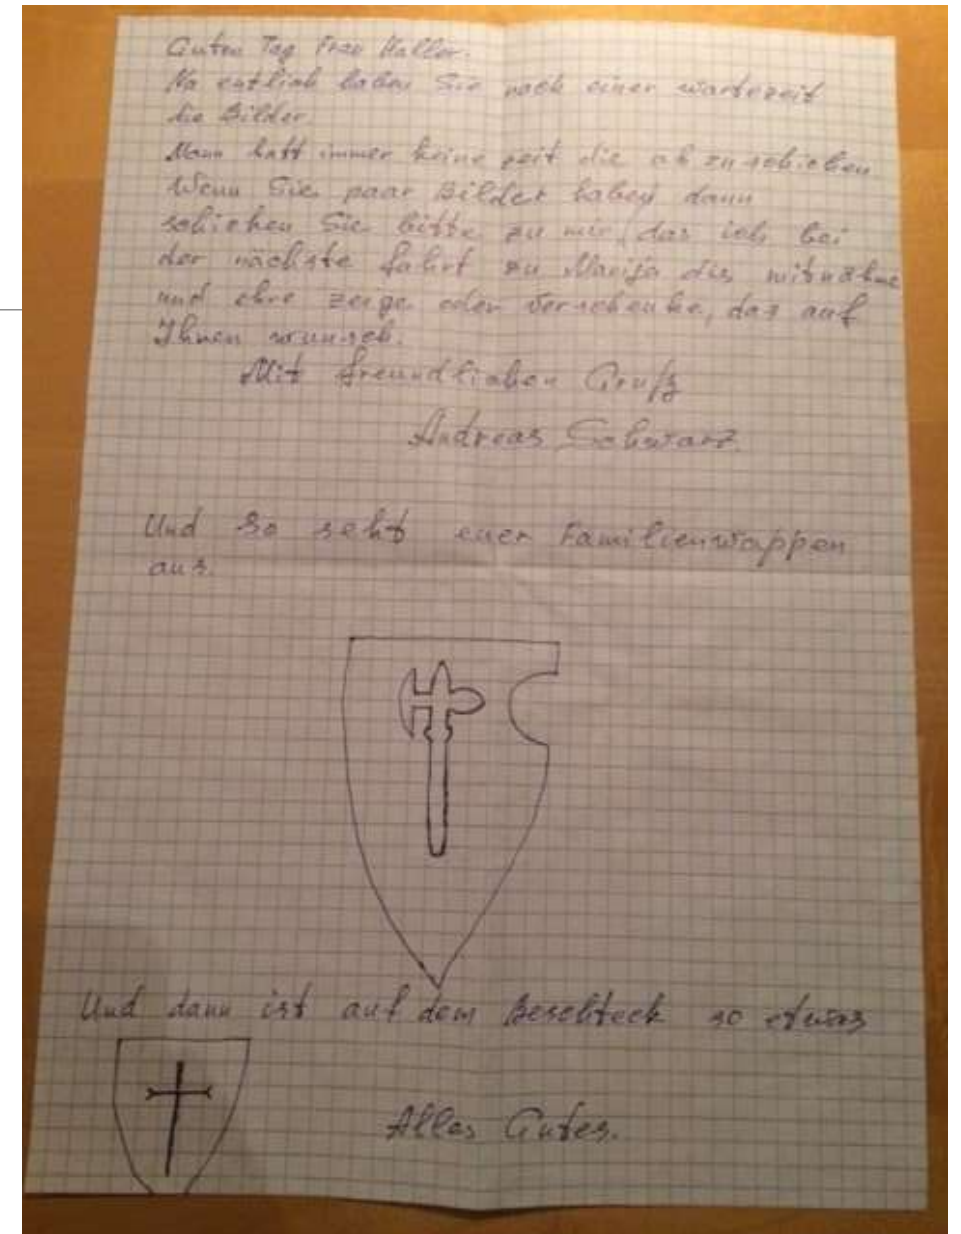 Guten Tag Frau Haller.
Na entlich haben Sie nach einer wartezeit
die Bilder.
Mann hatt immer keine zeit die ab zu schicken
Wenn Sie paar Bilder haben dann
schicken Sie bitte zu mir, das ich bei
der nächste fahrt zu Marija die mitnehme
und ihre zeige oder verschenke, das auf
Ihnen wunsch.
Mit freundlichen Gruß
Andreas Schwarz
Und so seht euer Familienwappen
aus.
Und dann ist auf dem Beschteck so etwas
Alles Gutes.